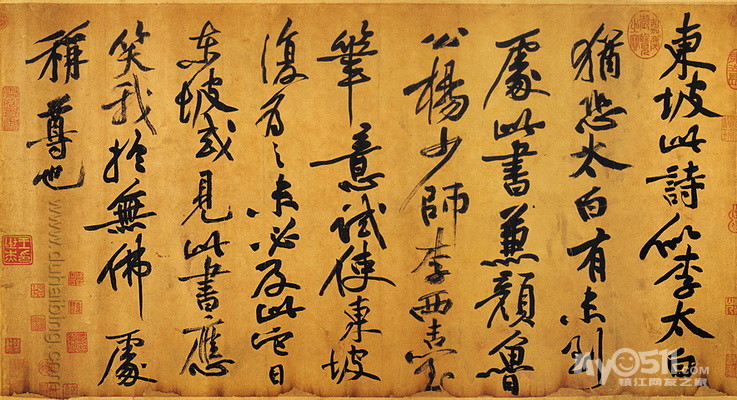 東坡此詩似李太白
猶恐太白有未到
處此書兼顏魯
公楊少師李西臺
筆意試使東坡
復為之未必及此它日
東坡或見此書應
笑我於無佛處
稱尊也
镇江网友之家